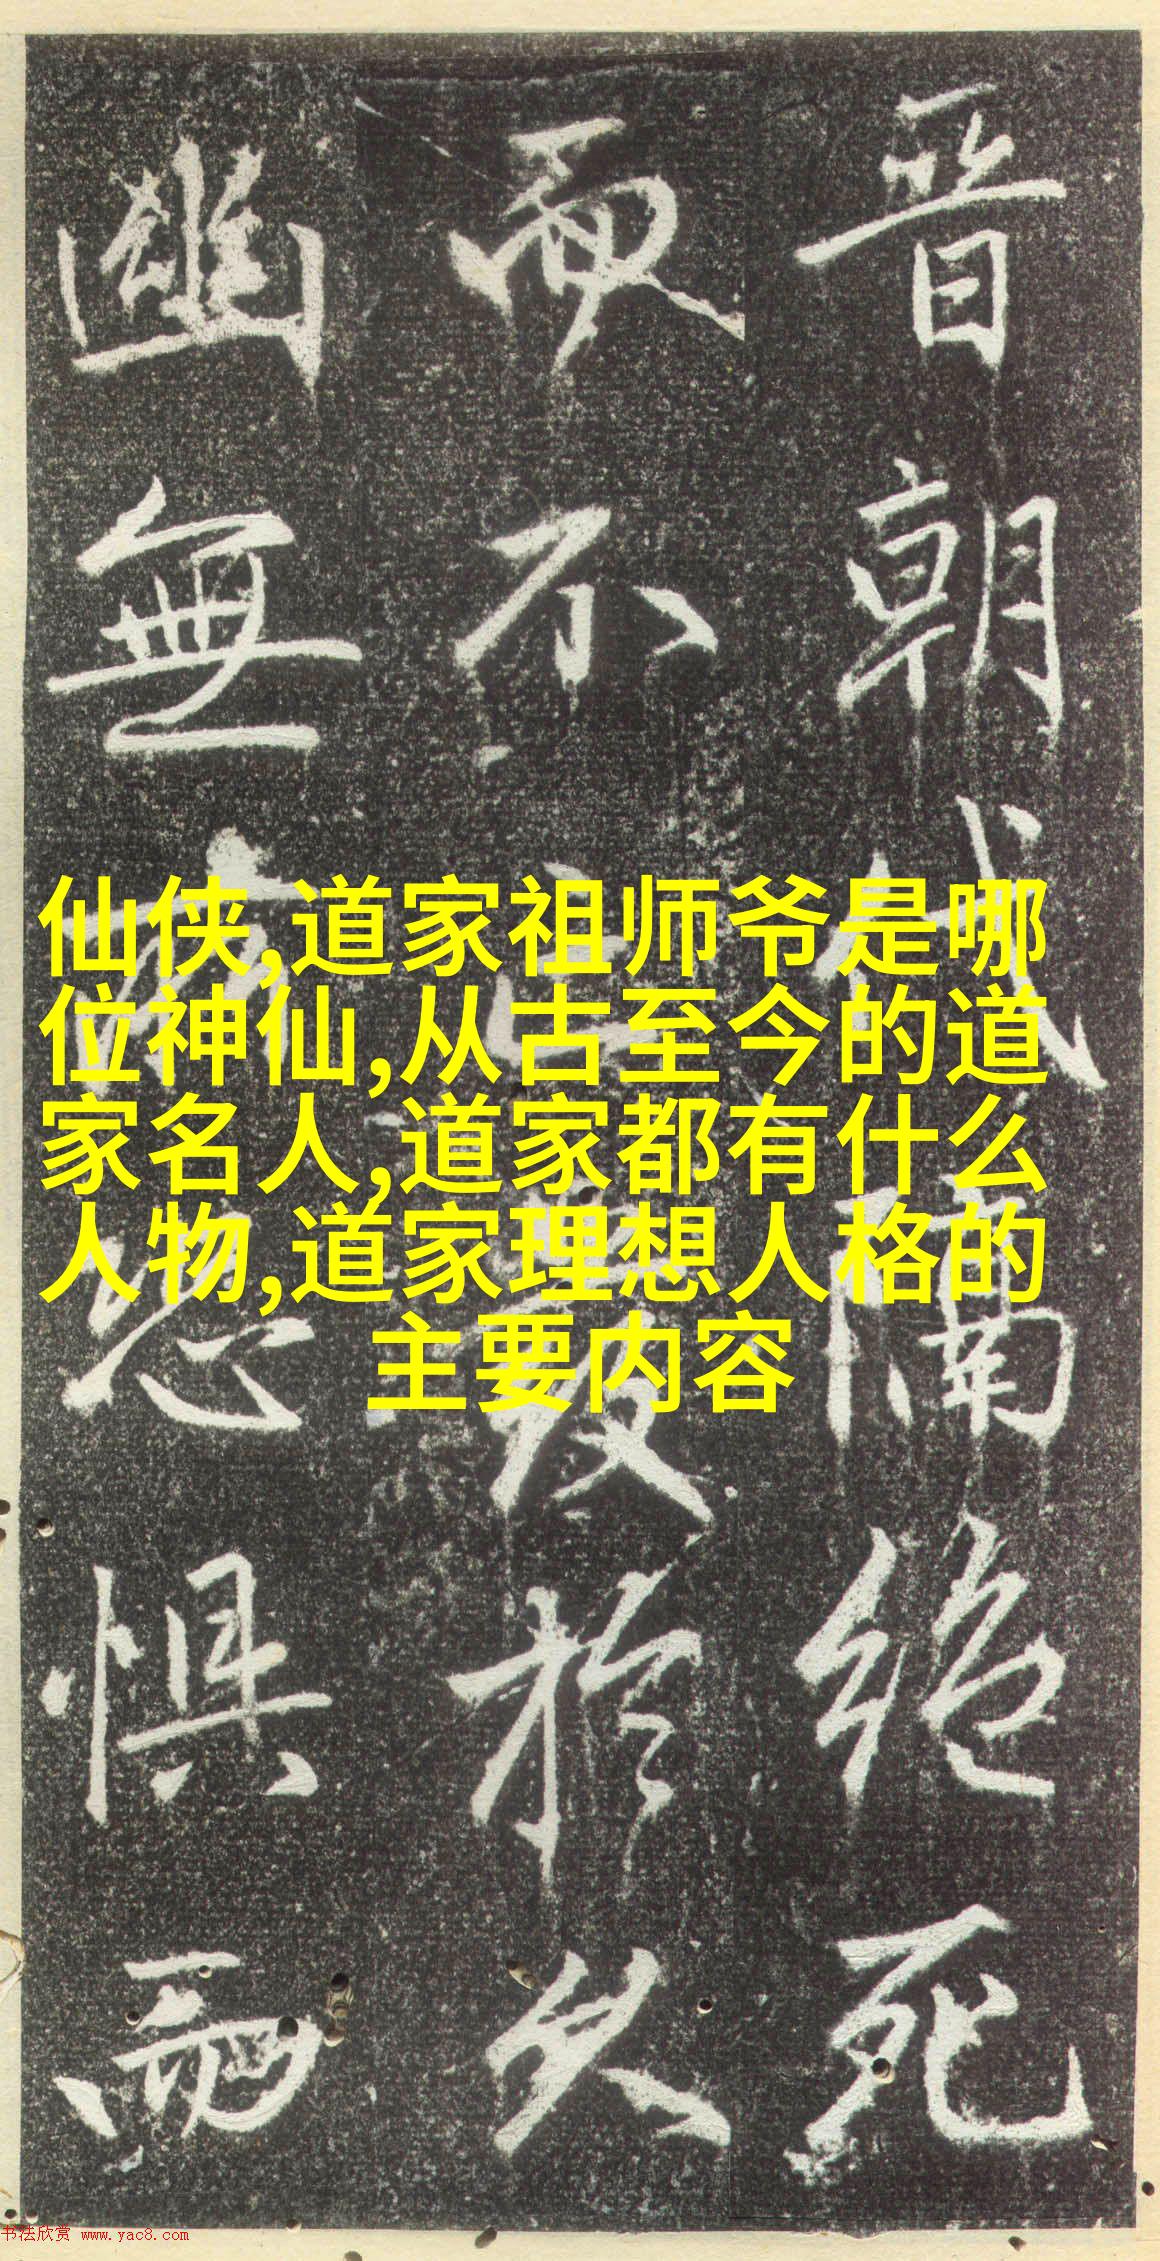 晉朝代隔絕死
而不於久
幽無恐懼
仙侠,道家祖师爷是哪
位神仙,从古至今的道
家名人,道家都有什么
人物,道家理想人格的
主要内容
书法欣赏 www.yac8.com